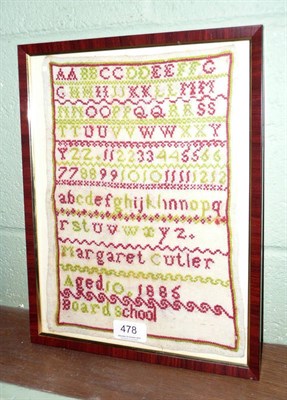 AABBCCDDEEFFG
GHHIIJJKKLLMM
NNOOPPQQRRSS
TTUUVVWWXXY
YZZ.112233445566
778899101011111212
abcdefghijklmnopq
rstuvwxyz.
Margaret Cutler
Aged 10. 1885
Board School
478